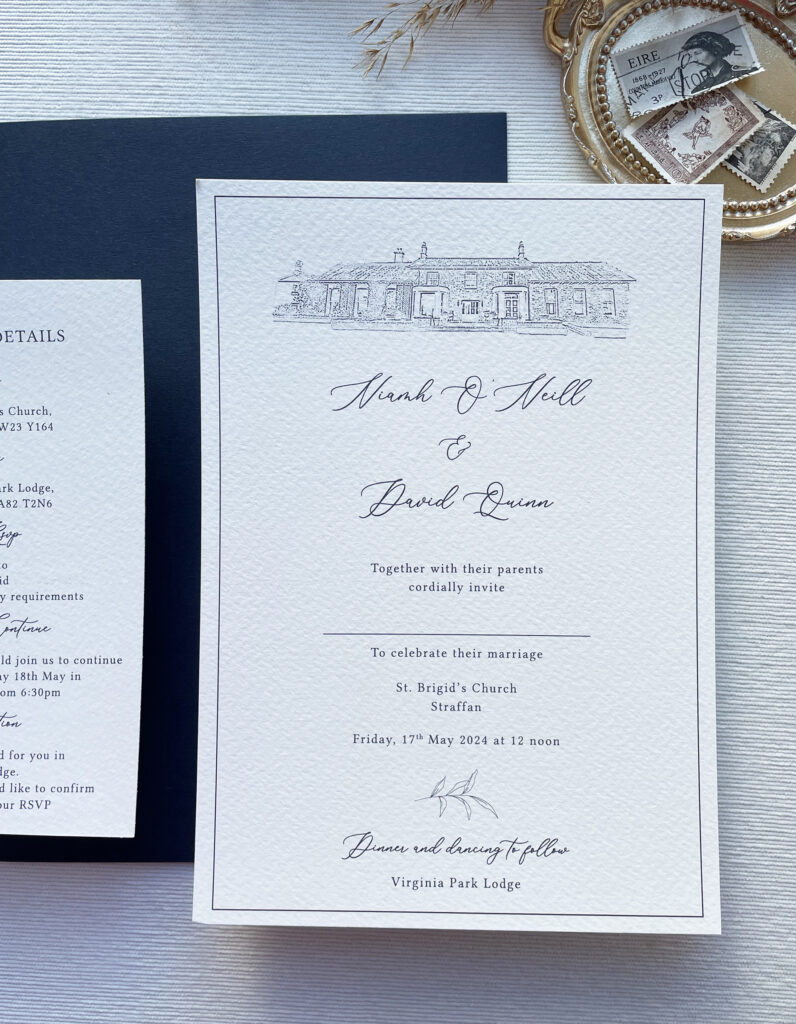 DETAILS
s Church,
W23 Y164
rk Lodge,
A82 T2N6
to
id
y requirements
Continue
ld join us to continue
ay 18th May in
om 6:30pm
d for you in
dge.
d like to confirm
our RSVP
Niamh O'Neill
&
David Quinn
Together with their parents
cordially invite
To celebrate their marriage
St. Brigid's Church
Straffan
Friday, 17th May 2024 at 12 noon
Dinner and dancing to follow
Virginia Park Lodge
EIRE
1868-1927
3P